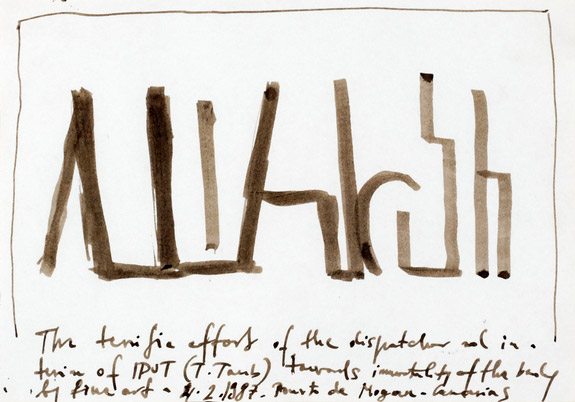 The terrific effort of the dispatcher and in-
terim of IPUT (T. Tamb) towards immortality of the body
by fine art - 4.2.1987. Puerto de Mogan - Canarias